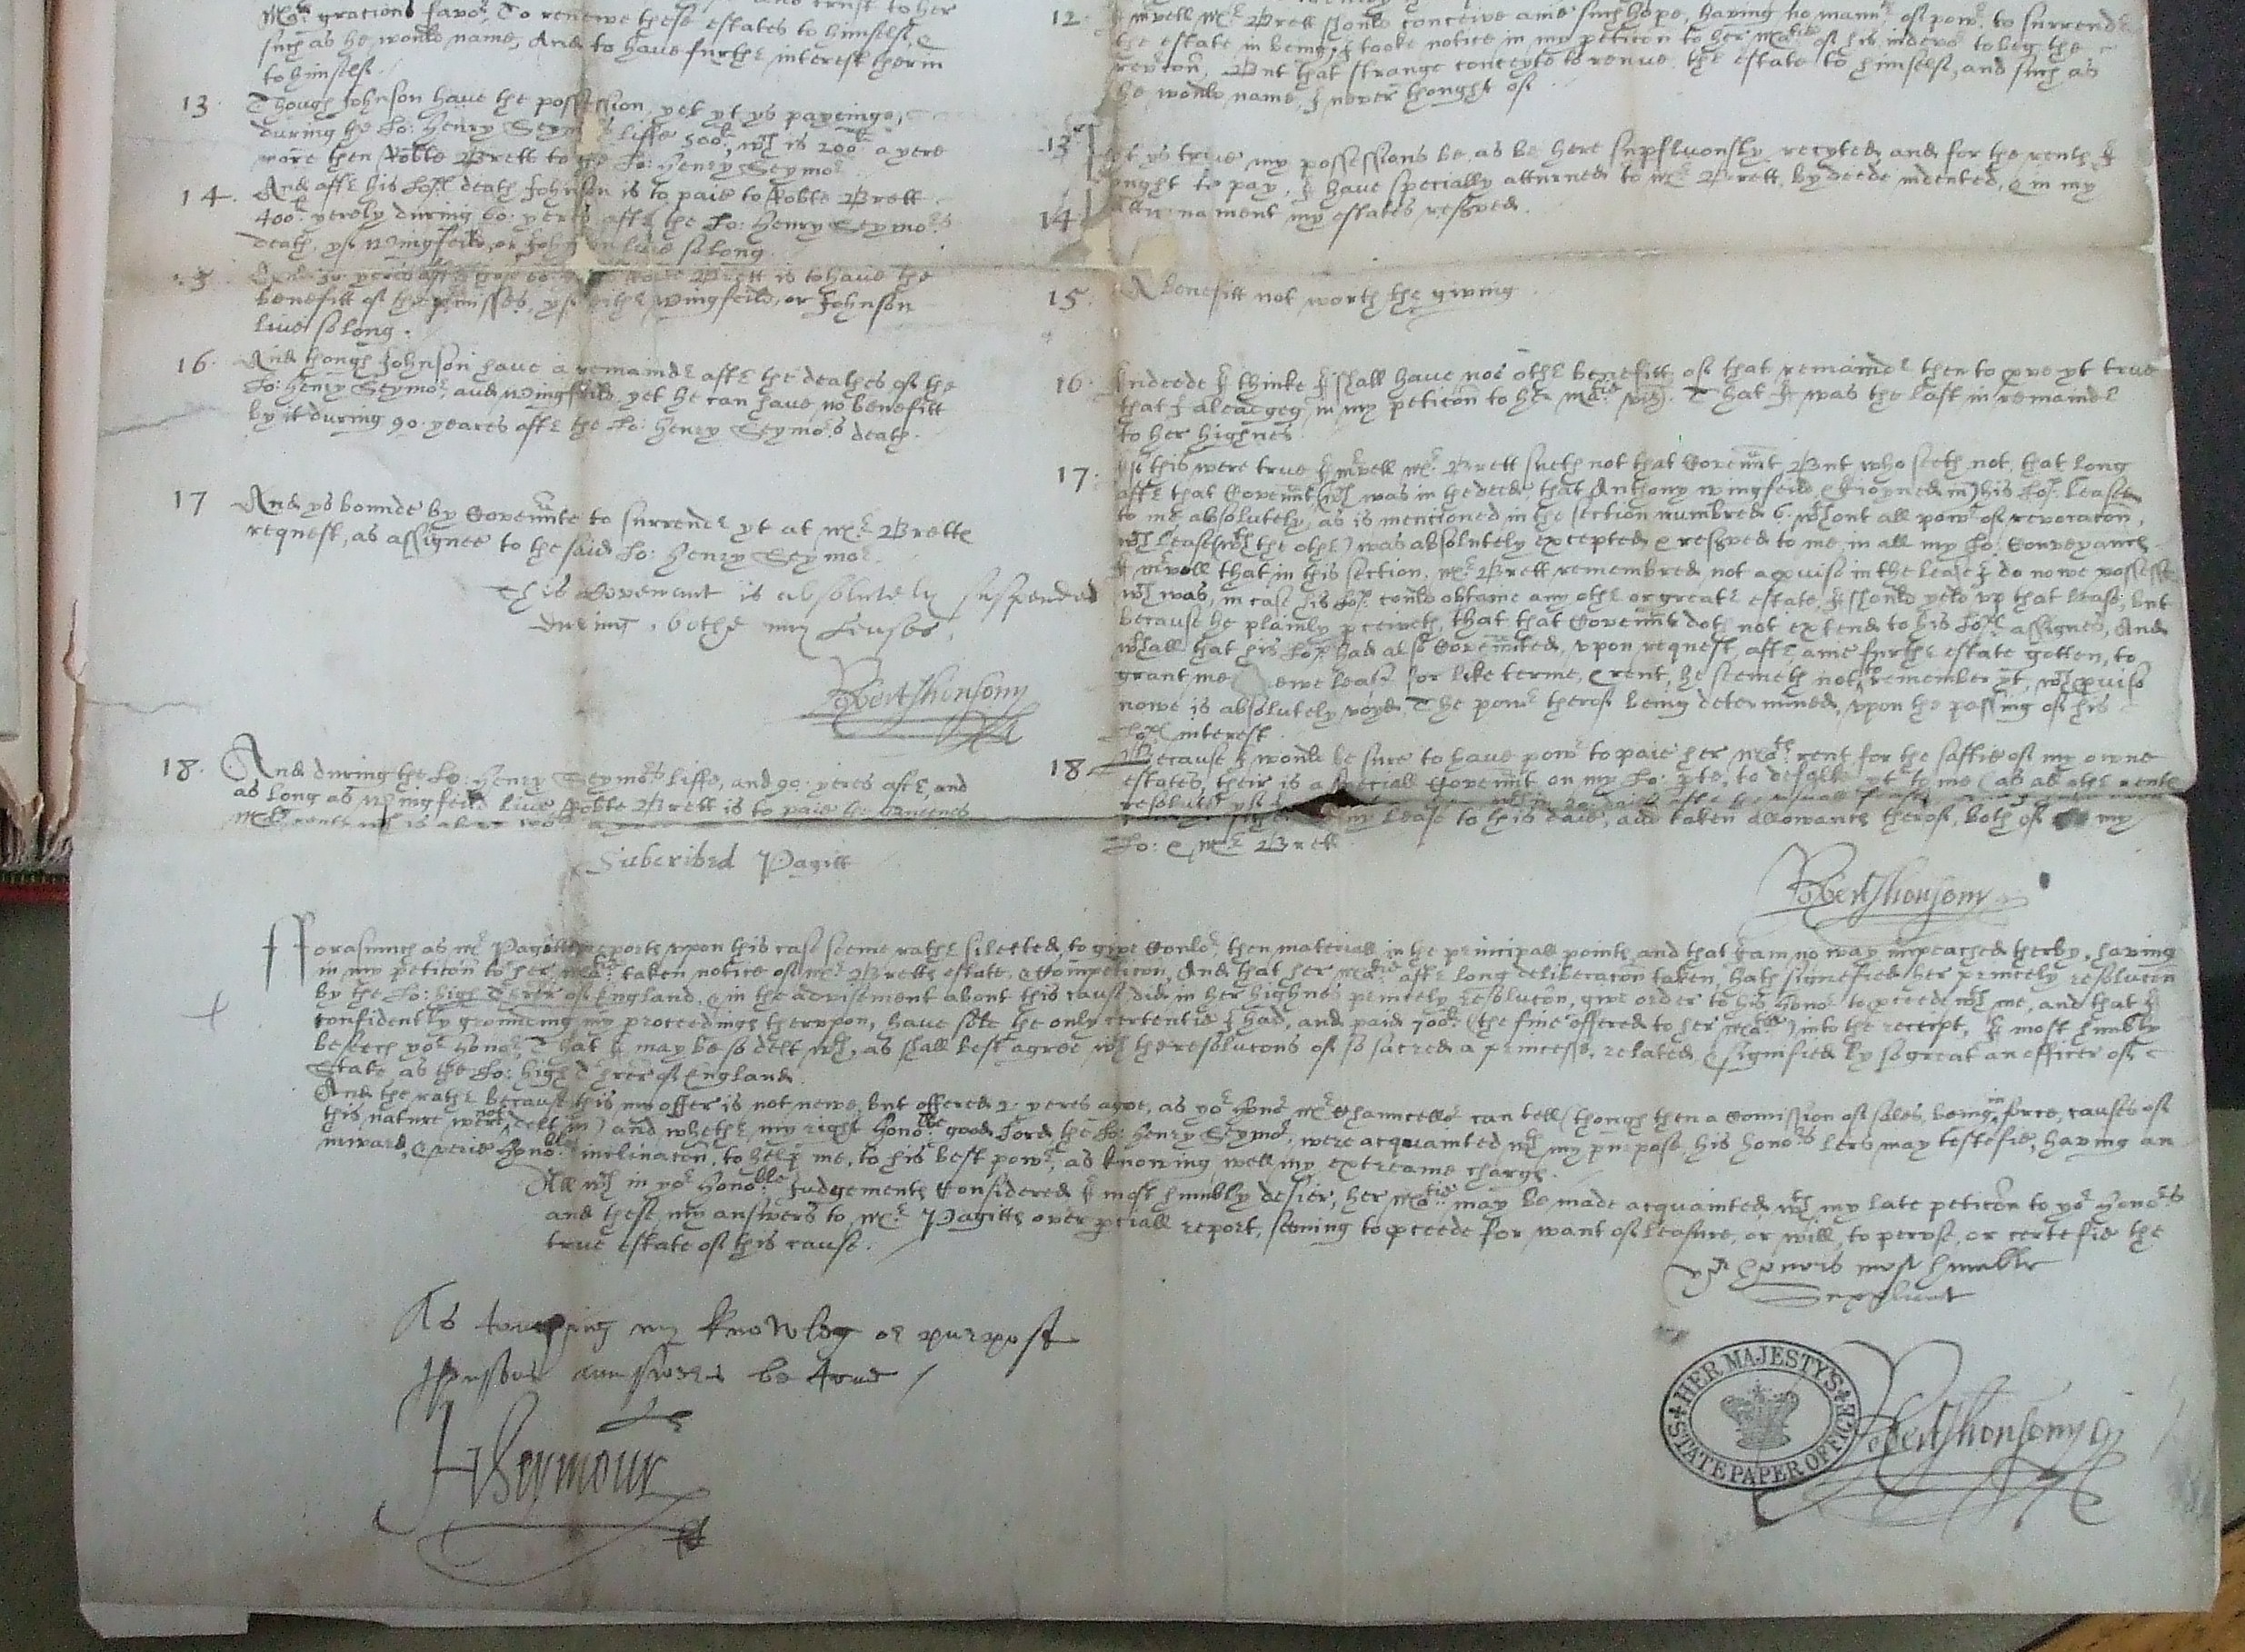 Ma.tis gracious favor, To renewe these estates to himself, &
such as he would name, And to have furthr interest therin
to himself.
13. Though Johnson have the possession, yet yt ys payeinge,
during the Lo: Henry Seymors liffe 500li, wch is 200li a yere
more then Robte Brett to the Lo: Henry Seymor.
14. And aftr his Lops death Johnson is to paie to Robte Brett
400li yerely during 60: yeres aftr the Lo: Henry Seymors
death, yf Wingfeild, or Johnson live so long.
Robte Brett is to have the
benefitt of the pmisses, yf eithr Wingfeild, or Johnson
live so long.
16. And though Johnson have a remaindr aftr the deathes of the
Lo: Henry Seymor, and Wingfeild, yet he can have no benefitt
by it during 90. yeares aftr the Lo: Henry Seymors death.
17 And ys bounde by Covennte to surrendr yt at Mr Bretts
request, as assignee to the said Lo: Henry Seymor.
This Covenant is absolutely suspended
during, bothe my Leases,
Robert Jhonsony
18. And during the Lo: Henry Seymors liffe, and 90. yeres aftr, and
as long as Wingfeild live Robte Brett is to paie the Queenes
Ma.ts rents wch is
Subcribed Pagitt
12. I mvell Mr Brett should conceive anie such hope, having no mannr of powr to surrendr
the estate in being, I tooke notice in my peticon to her Ma.tie of his indevor to beg the
revcon, But that strange conceyte to renue the estate to himself, and such as
he would name, I never thought of.
13. yt ys true my possessions be, as be here supfluously recyted, and for the rents I
14. ought to pay, I have specially atturned to Mr Brett, by deede indented, & in my
atturnament my estates resrved.
15. A benefitt not worth the giving.
16. Indeede I thinke I shall have noe othr benefitt of that remaindr then to prove yt true
that I aleadged in my peticon to her Ma.tie viz. That I was the last in remaindr
to her highnes.
17. yf this were true I mrvell Mr Brett sueth not that Covennt But who seeth not, that long
aftr that Covennt (wch was in the deede that Anthony Wingfeild & I joyned in) his Lop. leased
to me absolutely, as is mentioned in the section numbred 6. wthout all powr of revocacon,
wch lease (wth the othr) was absolutely excepted & resrved to me in all my Lo: Conveyance.
I mrvell that in this section. Mr Brett remembred not a pviso in the lease I do nowe possesse
wch was, in case his Lop. could obtaine any othr or greatr estate, I should yeld up that lease, but
because he plainly pceiveth, that that Covennt doth not extend to his Lops assignes, And
wthall that his Lop. had also Covennted, upon request, aftr anie furthr estate gotten, to
grant me newe lease for like terme, & rent, he seemeth not to remember yt, wch pviso
nowe is absolutely voyd, The powr therof being determined, upon the passing of his
Lops interest.
18 Because I would be sure to have powr to paie her Ma.ts rent for the saftie of my owne
estates, their is a speciall Covennt on my Lo: pte, to defalke yt to me (as all othr rents
my lease to this daie, and taken allowance therof, both of my
Lo: & Mr Brett.
Robert Jhonsony
Forasmuch as Mr Pagitts reports upon this case seeme rathr selected, to give Coulor, then materiall in the principall points, and that I am no way impeached therby, having
in my peticon to her Ma.tie taken notice of Mr Bretts estate, & Competicon, And that her Ma.tie aftr long deliberacon taken, hath signefied her princely resolucon
by the Lo: high Threr of England, & in the advisement about this cause, did in her highnes princely resolucon, give order to his Honor to pceede wth me, and that I
confidently grounding my proceedings therupon, have sold the only certentie I had, and paid 700li (the fine offered to her Ma.tie) into the receipt, I most humbly
beseech yor Honor, That I may be so delt wth, as shall best agree wth the resolucons of so sacred a princesse, related, & signified by so great an officer of
State as the Lo: high Threr of England.
And the rathr because this my offer is not newe, but offered 2. yeres agoe, as yor Honor Mr Chauncellor can tell (though then a Comission of sales, being in force, causes of
this nature were not delt in) and whethr my right Honoble good Lord the Lo: Henry Seymor, were acquainted wth my purpose his honors lers may testefie, having an
inward, & verie Honoble inclinacon, to help me, to his best powr, as knowing well my extreame charge.
All wch in yor Honoble Judgements Considered I most humbly desier, her Ma.tie may be made acquainted, wth my late peticon to yor Honors
and these my answers to Mr Pagitts over pciall report, seming to pceede for want of leasure, or will, to peruse, or certefie the
true estate of this cause.
yr honors most humble
Suppliant
As touching my knowledg or purpose
thessoe aunswers be trewe /
H Seymour
HER MAJESTY'S STATE PAPER OFFICE
Robert Jhonsony